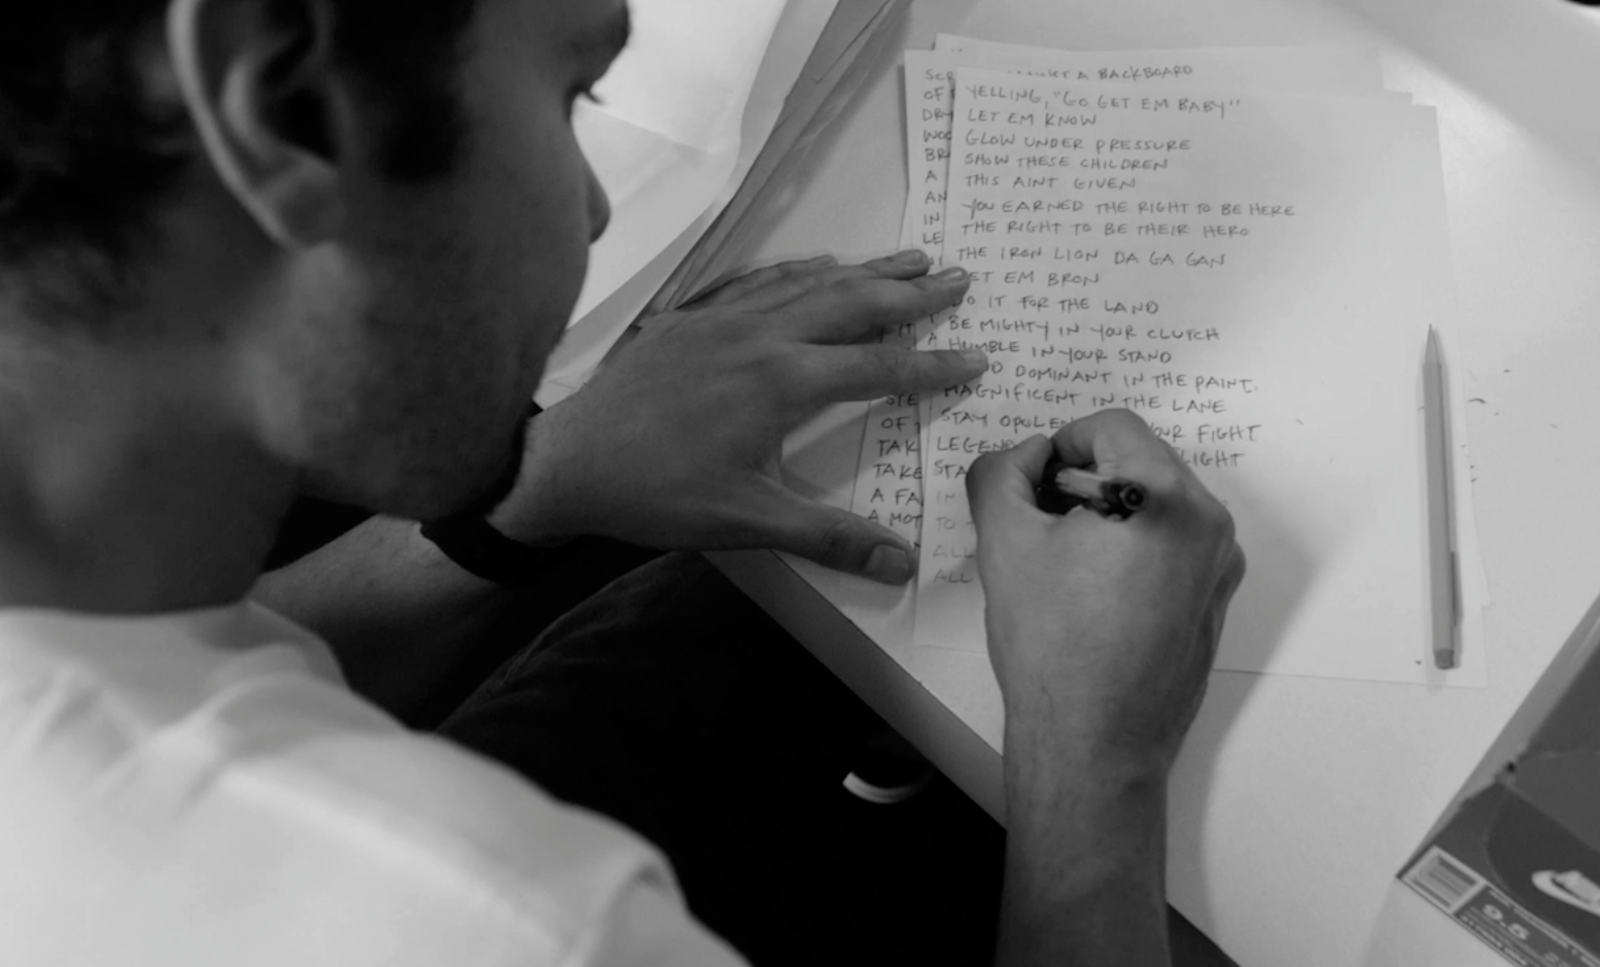 SCR A BACKBOARD
OF
DRY
WOO
BR
A
AN
IN
LE
YELLING, "GO GET EM BABY"
LET EM KNOW
GLOW UNDER PRESSURE
SHOW THESE CHILDREN
THIS AINT GIVEN
YOU EARNED THE RIGHT TO BE HERE
THE RIGHT TO BE THEIR HERO
THE IRON LION DA GA GAN
ET EM BRON
DO IT FOR THE LAND
BE MIGHTY IN YOUR CLUTCH
HUMBLE IN YOUR STAND
DOMINANT IN THE PAINT.
MAGNIFICENT IN THE LANE
STAY OPULEN OUR FIGHT
LEGEND LIGHT
STA
IN
TO
ALL
ALL
IT
A
STE
OF
TAK
TAKE
A FA
A MOT
9.5